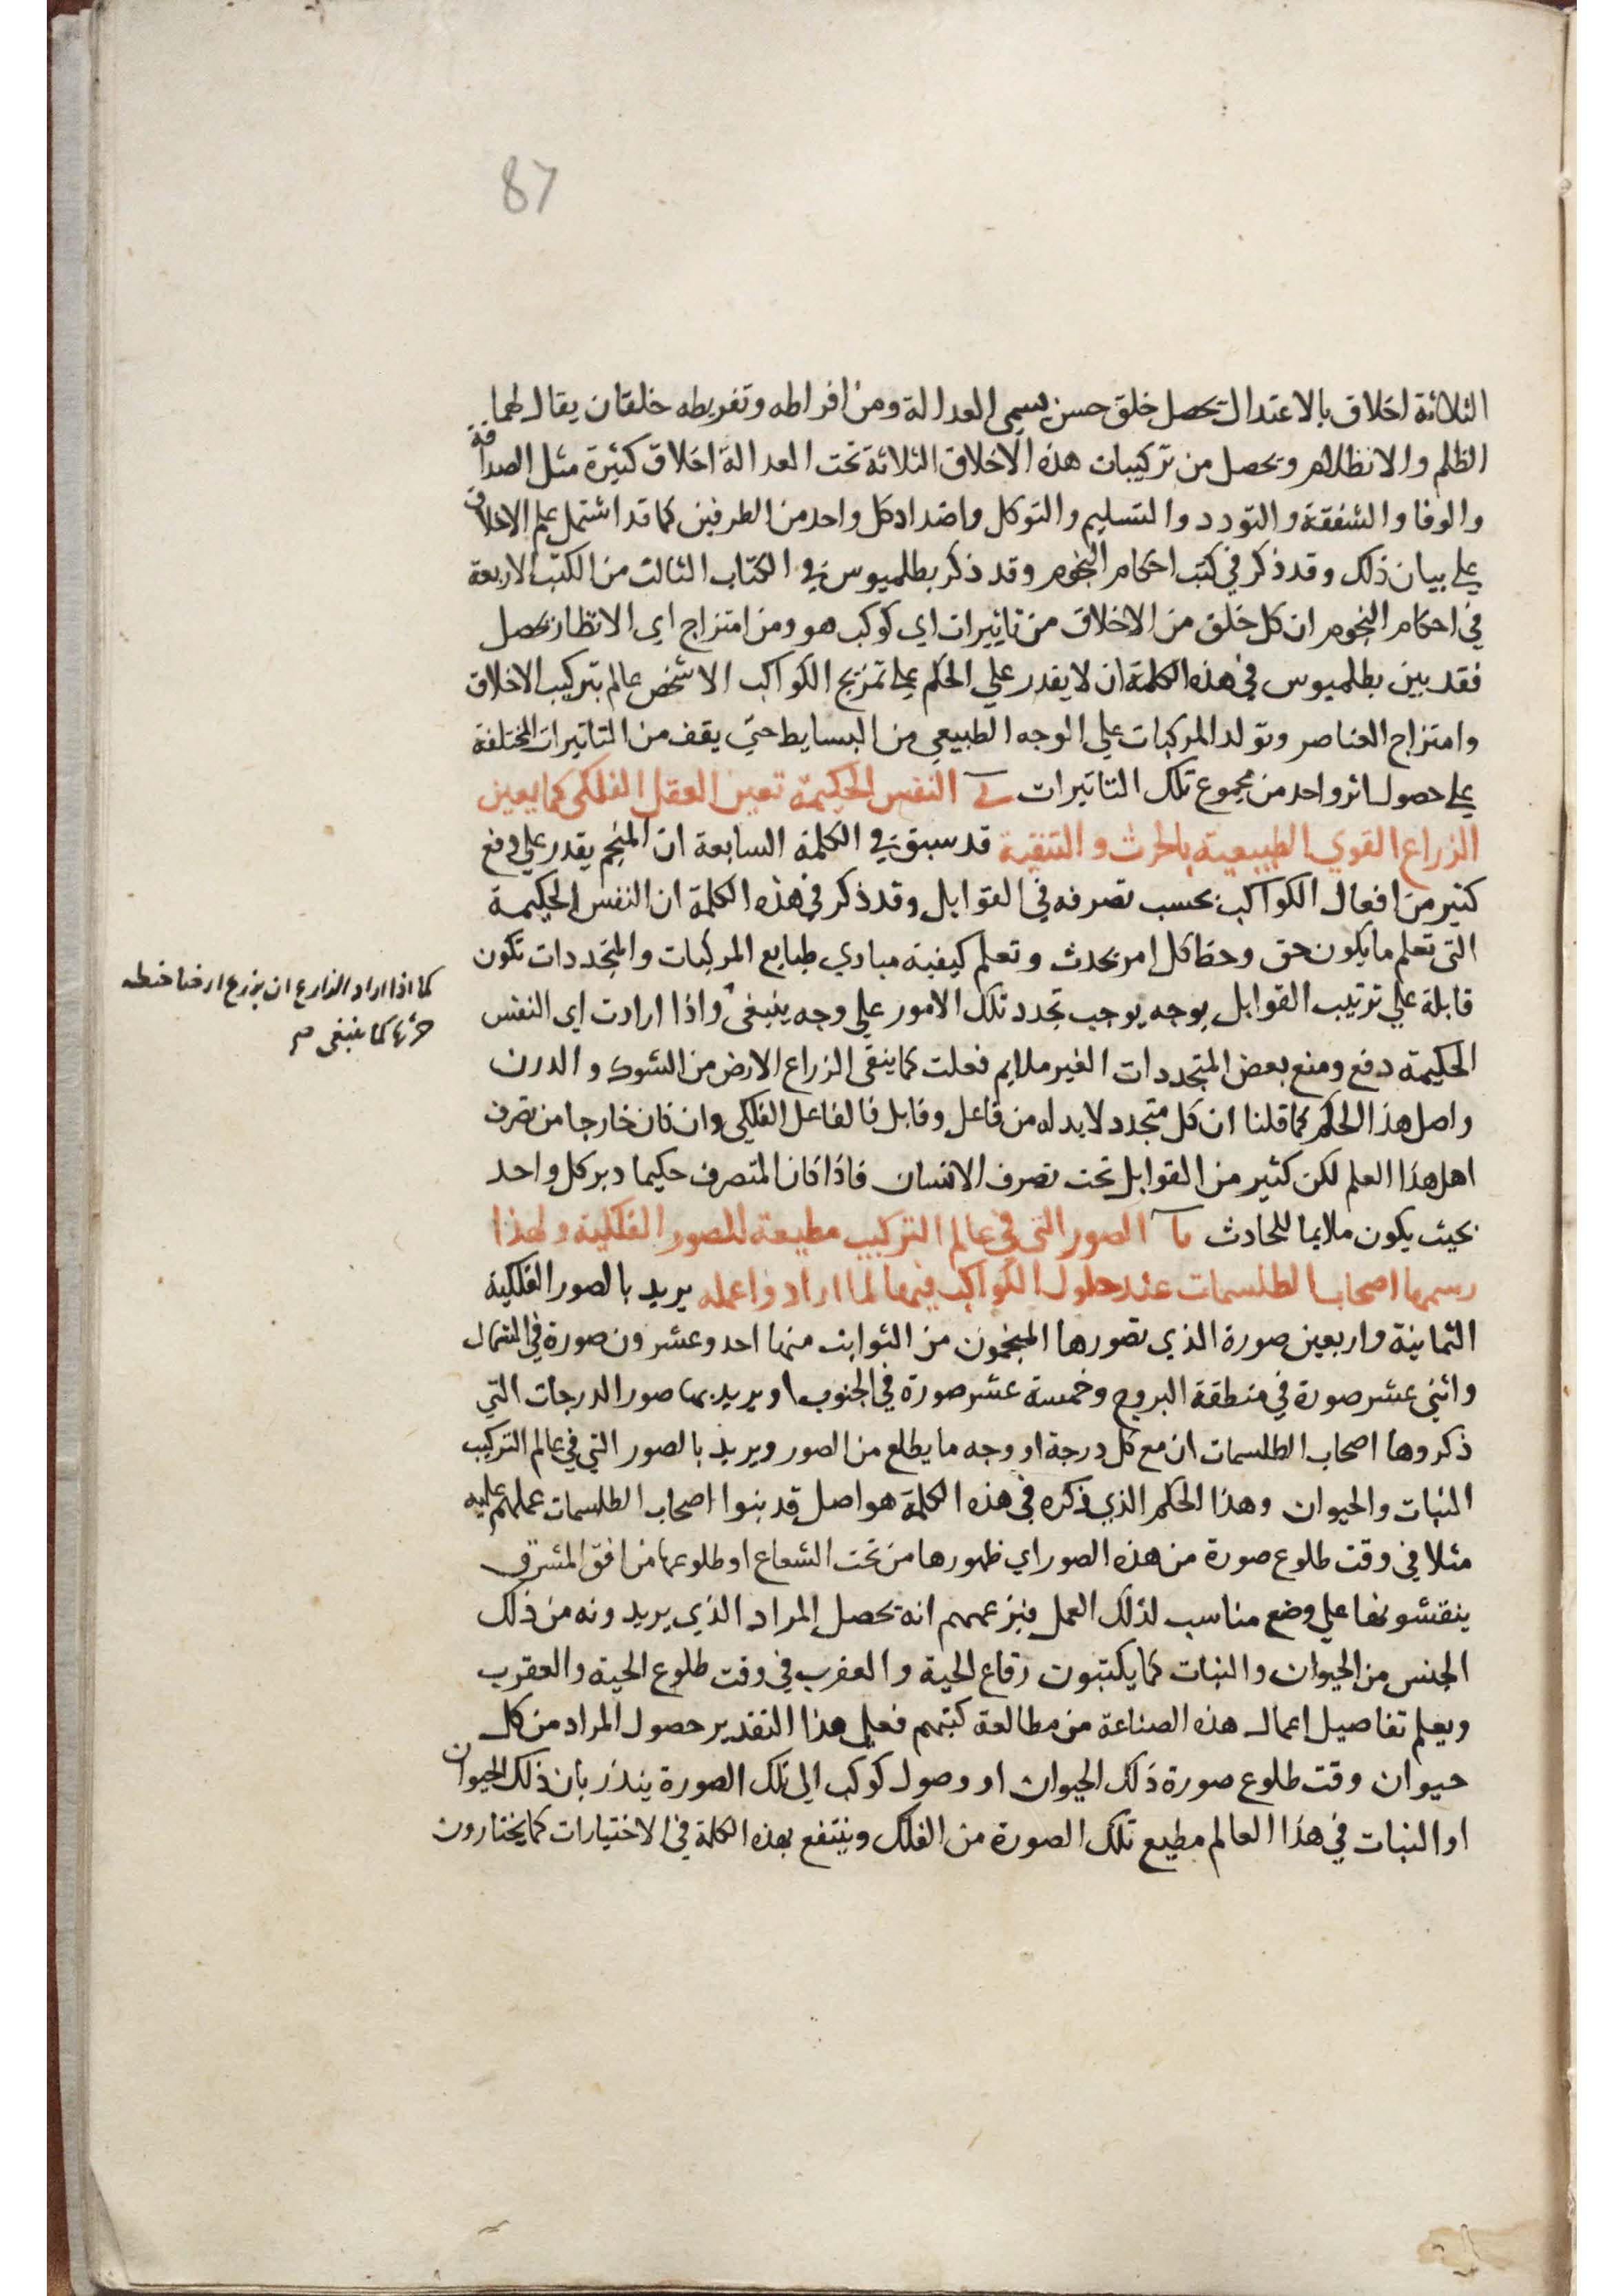 87
الثلاثة اخلاق بالاعتدال يحصل خلق حسن يسمى العدالة ومن افراطه وتفريطه خلقان يقال لهما
الظلم والانظلام ويحصل من تركيبات هذه الاخلاق الثلاثة تحت العدالة اخلاق كثيرة مثل الصداقة
والوفا والشفقة والتودد والتسليم والتوكل واضداد كل واحد من الطرفين كما قد اشتمل علم الاخلاق
علي بيان ذلك وقد ذكر في كتب احكام النجوم وقد ذكر بطلميوس في الكتاب الثالث من الكتب الاربعة
في احكام النجوم ان كل خلق من الاخلاق من تاثيرات اي كوكب هو ومن امتزاج اي الانظار يحصل
فقد بين بطلميوس في هذه الكلمة ان لا يقدر علي الحكم علي تمزيج الكواكب الا شخص عالم بتركيب الاخلاق
وامتزاج العناصر وتولد المركبات علي الوجه الطبيعي من البسايط حتي يقف من التاثيرات المختلفة
علي حصول اثر واحد من مجموع تلك التاثيرات النفس الحكيمة تعين العقل الفلكى كما يعين
الزراع القوي الطبيعية بالحرث والتنقية قد سبق في الكلمة السابعة ان المنجم يقدر علي دفع
كثير من افعال الكواكب بحسب تصرفه في القوابل وقد ذكر في هذه الكلمة ان النفس الحكيمة
التى تعلم ما يكون حق وحظ كل امر يحدث وتعلم كيفية مبادي طبايع المركبات والمتجددات تكون
قابلة علي ترتيب القوابل بوجه يوجب تجدد تلك الامور علي وجه ينبغى واذا ارادت اي النفس
كما اذا اراد الزارع ان يزرع ارضا حنطه
حرثها كما ينبغى صح
الحكيمة دفع ومنع بعض المتجددات الغير ملايم فعلت كما ينقى الزراع الارض من الشوك والدرن
واصل هذا الحكم كما قلنا ان كل متجدد لابد له من فاعل وقابل فالفاعل الفلكي وان كان خارجا من تصرف
اهل هذا العلم لكن كثير من القوابل تحت تصرف الانسان فاذا كان المتصرف حكيما دبر كل واحد
بحيث يكون ملايما للحادث الصور التى في عالم التركيب مطيعة للصور الفلكية ولهذا
رسمها اصحاب الطلسمات عند حلول الكواكب فيها لما ارادوا عمله يريد بالصور الفلكية
الثمانية واربعين صورة الذي تصورها المنجمون من الثوابت منها احد وعشرون صورة في الشمال
واثنى عشر صورة في منطقة البروج وخمسة عشر صورة في الجنوب او يريد بها صور الدرجات التي
ذكروها اصحاب الطلسمات ان مع كل درجة او وجه ما يطلع من الصور ويريد بالصور التي في عالم التركيب
النبات والحيوان وهذا الحكم الذي ذكره في هذه الكلمة هو اصل قد بنوا اصحاب الطلسمات عملهم عليه
مثلا في وقت طلوع صورة من هذه الصور اي ظهورها من تحت الشعاع او طلوعها من افق المشرق
ينقشونها علي وضع مناسب لذلك العمل فبزعمهم انه يحصل المراد الذي يريدونه من ذلك
الجنس من الحيوان والنبات كما يكتبون رقاع الحية والعقرب في وقت طلوع الحية والعقرب
ويعلم تفاصيل اعمال هذه الصناعة من مطالعة كتبهم فعلي هذا التقدير حصول المراد من كل
حيوان وقت طلوع صورة ذلك الحيوان او وصول كوكب الي تلك الصورة ينذر بان ذلك الحيوان
او النبات في هذا العالم مطيع تلك الصورة من الفلك وينتفع بهذه الكلمة في الاختيارات كما يختارون